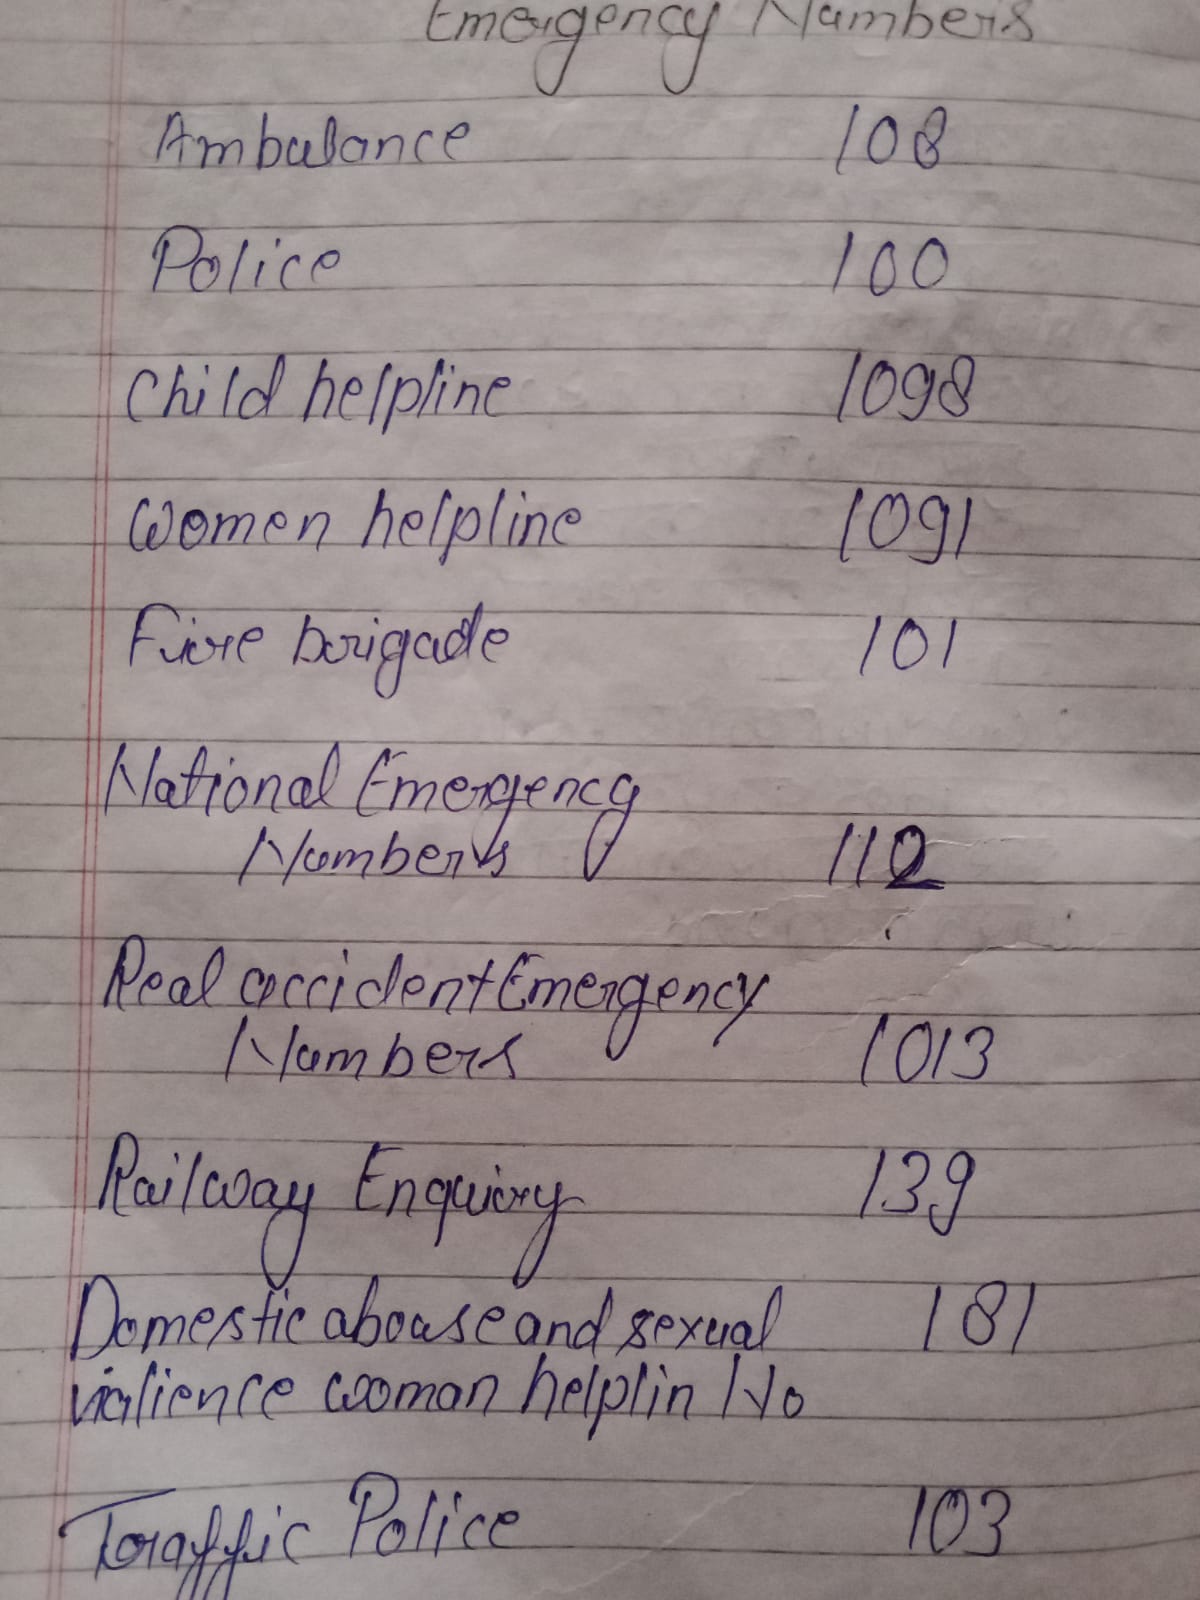 Emergency Numbers
Ambulance 108
Police 100
Child helpline 1098
Women helpline 1091
Fire brigade 101
National Emergency
Numbers 112
Real accident Emergency
Numbers 1013
Railway Enquiry 139
Domestic abouse and sexual 181
vialience wooman helplin No
Traffic Police 103